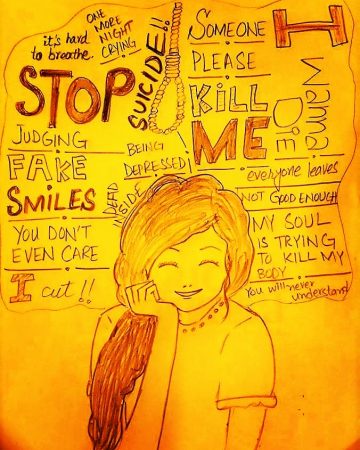 it's hard
to breathe.
ONE
MORE
NIGHT
CRYING
STOP
SUICIDE!!
JUDGING
FAKE
SMILES
BEING
DEPRESSED
DEAD
INSIDE
YOU DON'T
EVEN CARE
I cut!!
SOMEONE
PLEASE
KILL
ME
I
WANNA
DIE
everyone leaves
NOT GOOD ENOUGH
MY SOUL
IS TRYING
TO KILL MY
BODY
You will never
understand